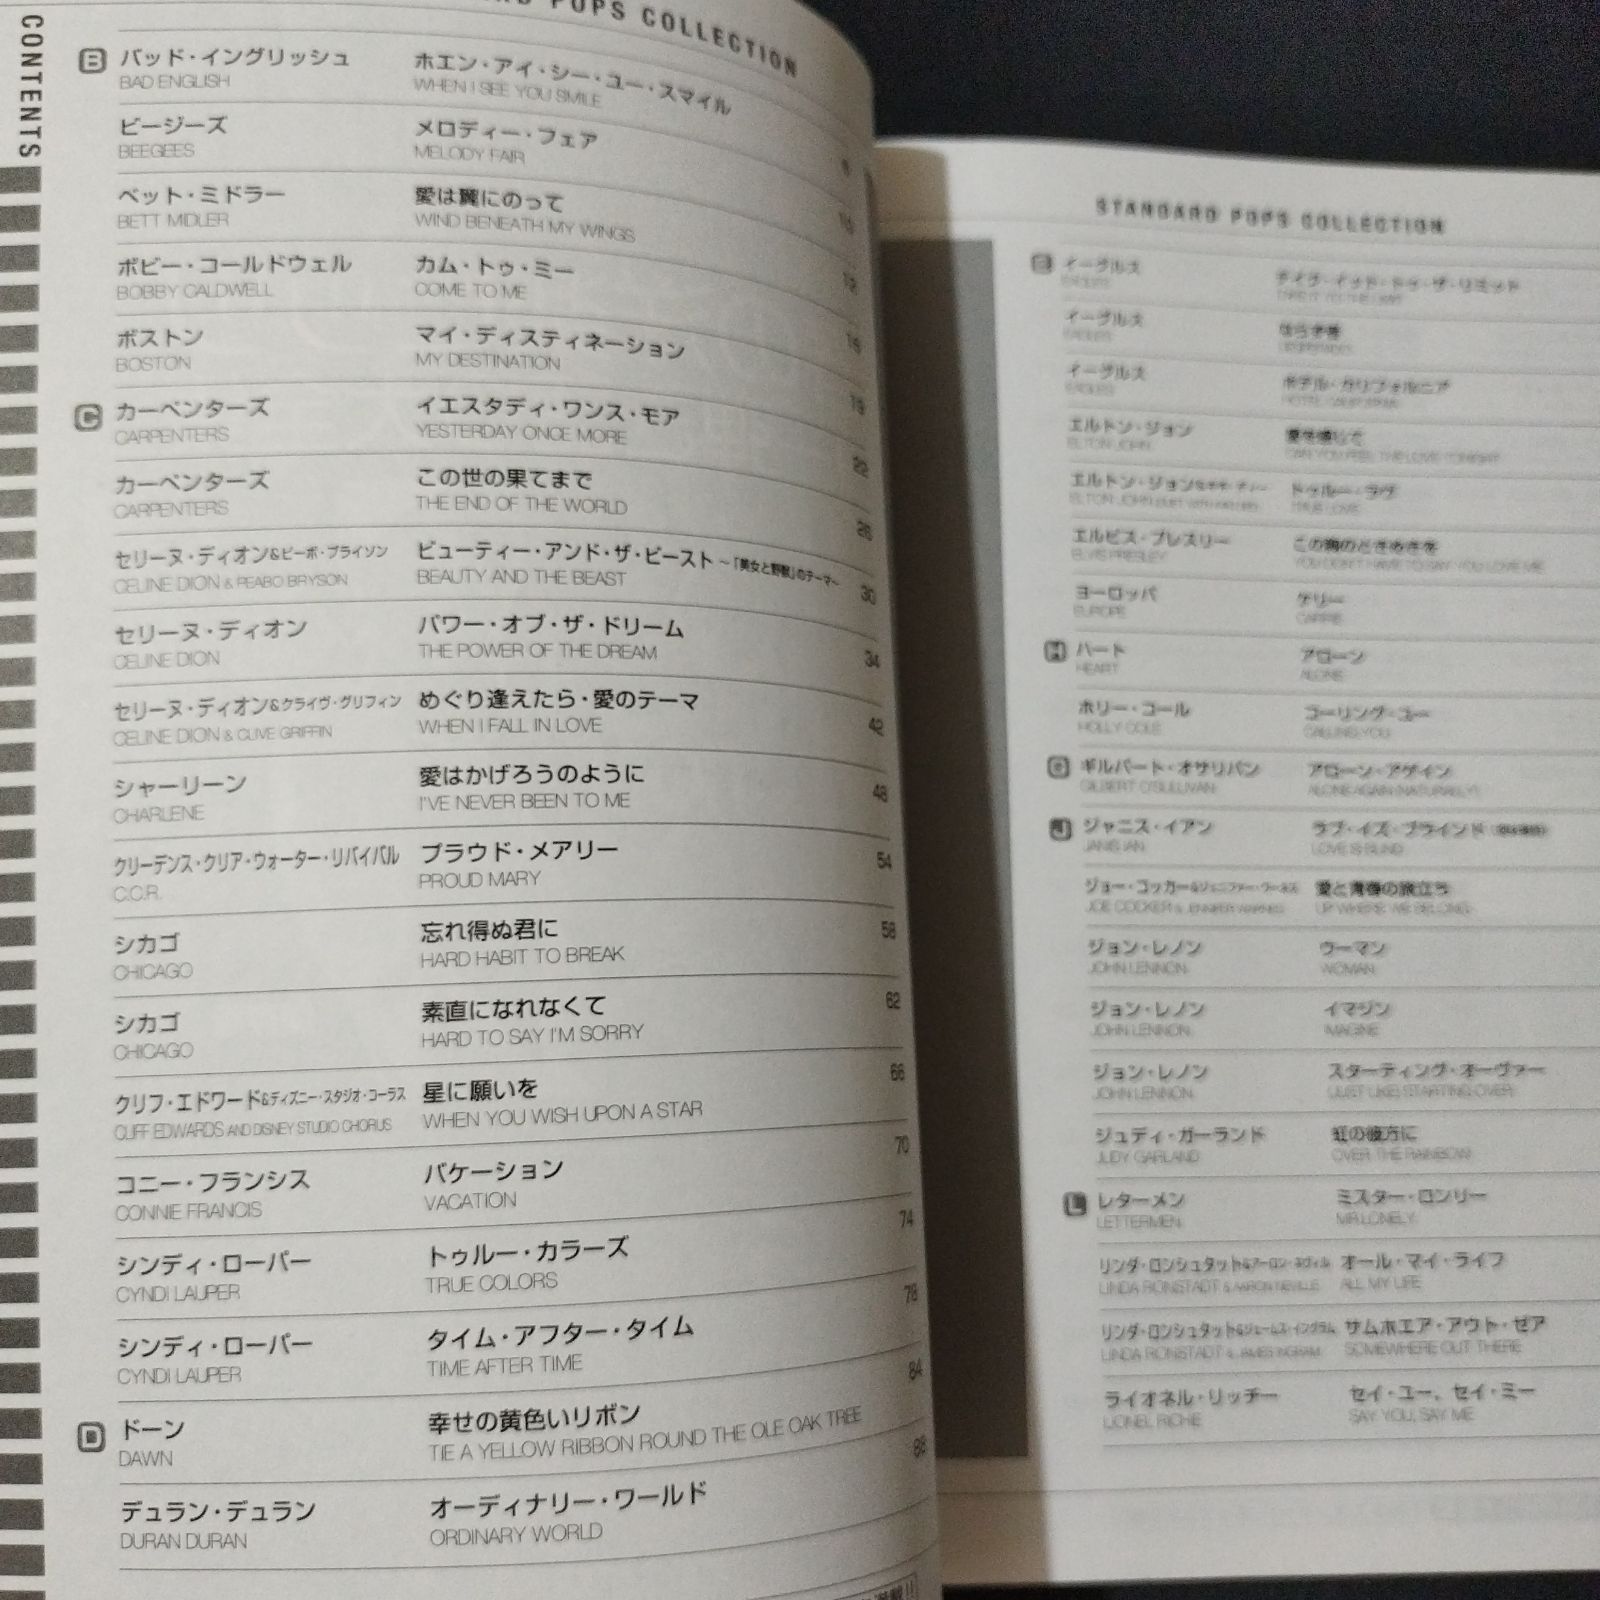 CONTENTS
POPS COLLECTION
B バッド・イングリッシュ ホエン・アイ・シー・ユー・スマイル
BAD ENGLISH WHEN I SEE YOU SMILE
ビージーズ メロディー・フェア
BEEGEES MELODY FAIR
ベット・ミドラー 愛は翼にのって
BETT MIDLER WIND BENEATH MY WINGS
ボビー・コールドウェル カム・トゥ・ミー
BOBBY CALDWELL COME TO ME
ボストン マイ・ディスティネーション
BOSTON MY DESTINATION
19
C カーペンターズ イエスタディ・ワンス・モア
CARPENTERS YESTERDAY ONCE MORE
22
カーペンターズ この世の果てまで
CARPENTERS THE END OF THE WORLD
26
セリーヌ・ディオン&ピーボ・ブライソン ビューティー・アンド・ザ・ビースト ～「美女と野獣」のテーマ～
CELINE DION & PEABO BRYSON BEAUTY AND THE BEAST
30
セリーヌ・ディオン パワー・オブ・ザ・ドリーム
CELINE DION THE POWER OF THE DREAM
34
セリーヌ・ディオン&クライヴ・グリフィン めぐり逢えたら・愛のテーマ
CELINE DION & CLIVE GRIFFIN WHEN I FALL IN LOVE
42
シャーリーン 愛はかげろうのように
CHARLENE I'VE NEVER BEEN TO ME
48
クリーデンス・クリア・ウォーター・リバイバル プラウド・メアリー
C.C.R. PROUD MARY
54
シカゴ 忘れ得ぬ君に
CHICAGO HARD HABIT TO BREAK
58
シカゴ 素直になれなくて
CHICAGO HARD TO SAY I'M SORRY
62
クリフ・エドワード&ディズニー・スタジオ・コーラス 星に願いを
CLIFF EDWARDS AND DISNEY STUDIO CHORUS WHEN YOU WISH UPON A STAR
66
コニー・フランシス バケーション
CONNIE FRANCIS VACATION
70
シンディ・ローパー トゥルー・カラーズ
CYNDI LAUPER TRUE COLORS
74
シンディ・ローパー タイム・アフター・タイム
CYNDI LAUPER TIME AFTER TIME
78
D ドーン 幸せの黄色いリボン
DAWN TIE A YELLOW RIBBON ROUND THE OLE OAK TREE
84
デュラン・デュラン オーディナリー・ワールド
DURAN DURAN ORDINARY WORLD
88
STANDARD POPS COLLECTION
イーグルス テイク・イット・トゥ・ザ・リミット
イーグルス
イーグルス ホテル・カリフォルニア
エルトン・ジョン 愛を感じて
ELTON JOHN CAN YOU FEEL THE LOVE TONIGHT
トゥルー・ラヴ
TRUE LOVE
エルビス・プレスリー この胸のときめきを
ELVIS PRESLEY YOU DON'T HAVE TO SAY YOU LOVE ME
ヨーロッパ ケリー
EUROPE CARRIE
H ハート アローン
HEART ALONE
ホリー・コール コーリング・ユー
HOLLY COLE CALLING YOU
ギルバート・オサリバン アローン・アゲイン
GILBERT O'SULLIVAN ALONE AGAIN (NATURALLY)
J ジャニス・イアン ラブ・イズ・ブラインド
JANIS IAN LOVE IS BLIND
ジョー・コッカー&ジェニファー・ウォーンズ 愛と青春の旅立ち
JOE COCKER & JENNIFER WARNES UP WHERE WE BELONG
ジョン・レノン ウーマン
JOHN LENNON WOMAN
ジョン・レノン イマジン
JOHN LENNON IMAGINE
ジョン・レノン スターティング・オーヴァー
JOHN LENNON (JUST LIKE) STARTING OVER
ジュディ・ガーランド 虹の彼方に
JUDY GARLAND OVER THE RAINBOW
L レターメン ミスター・ロンリー
LETTERMEN MR.LONELY
リンダ・ロンシュタット&アーロン・ネヴィル オール・マイ・ライフ
LINDA RONSTADT & AARON NEVILLE ALL MY LIFE
リンダ・ロンシュタット&ジェームス・イングラム サムホエア・アウト・ゼア
LINDA RONSTADT & JAMES INGRAM SOMEWHERE OUT THERE
ライオネル・リッチー セイ・ユー、セイ・ミー
LIONEL RICHIE SAY YOU, SAY ME